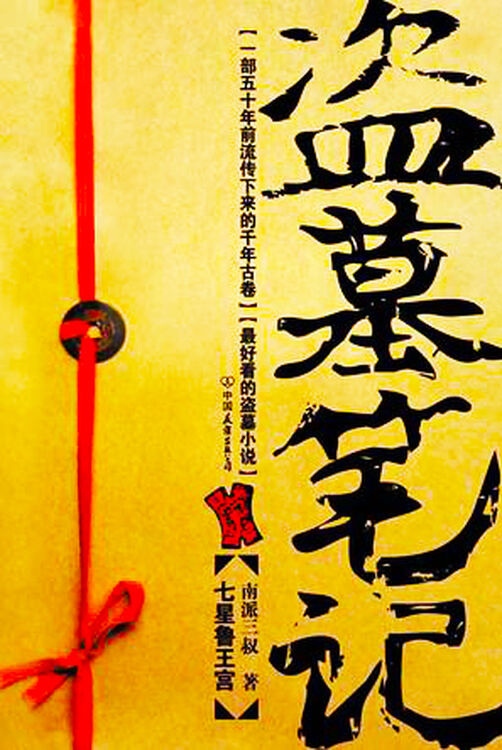 盗墓笔记
【一部五十年前流传下来的千年古卷】【最好看的盗墓小说】
中国友谊出版公司
南派三叔 著
【七星鲁王宫】